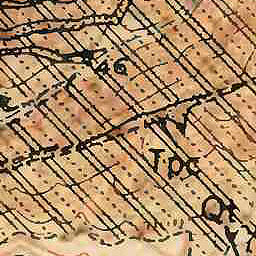 46
TDc
Qt